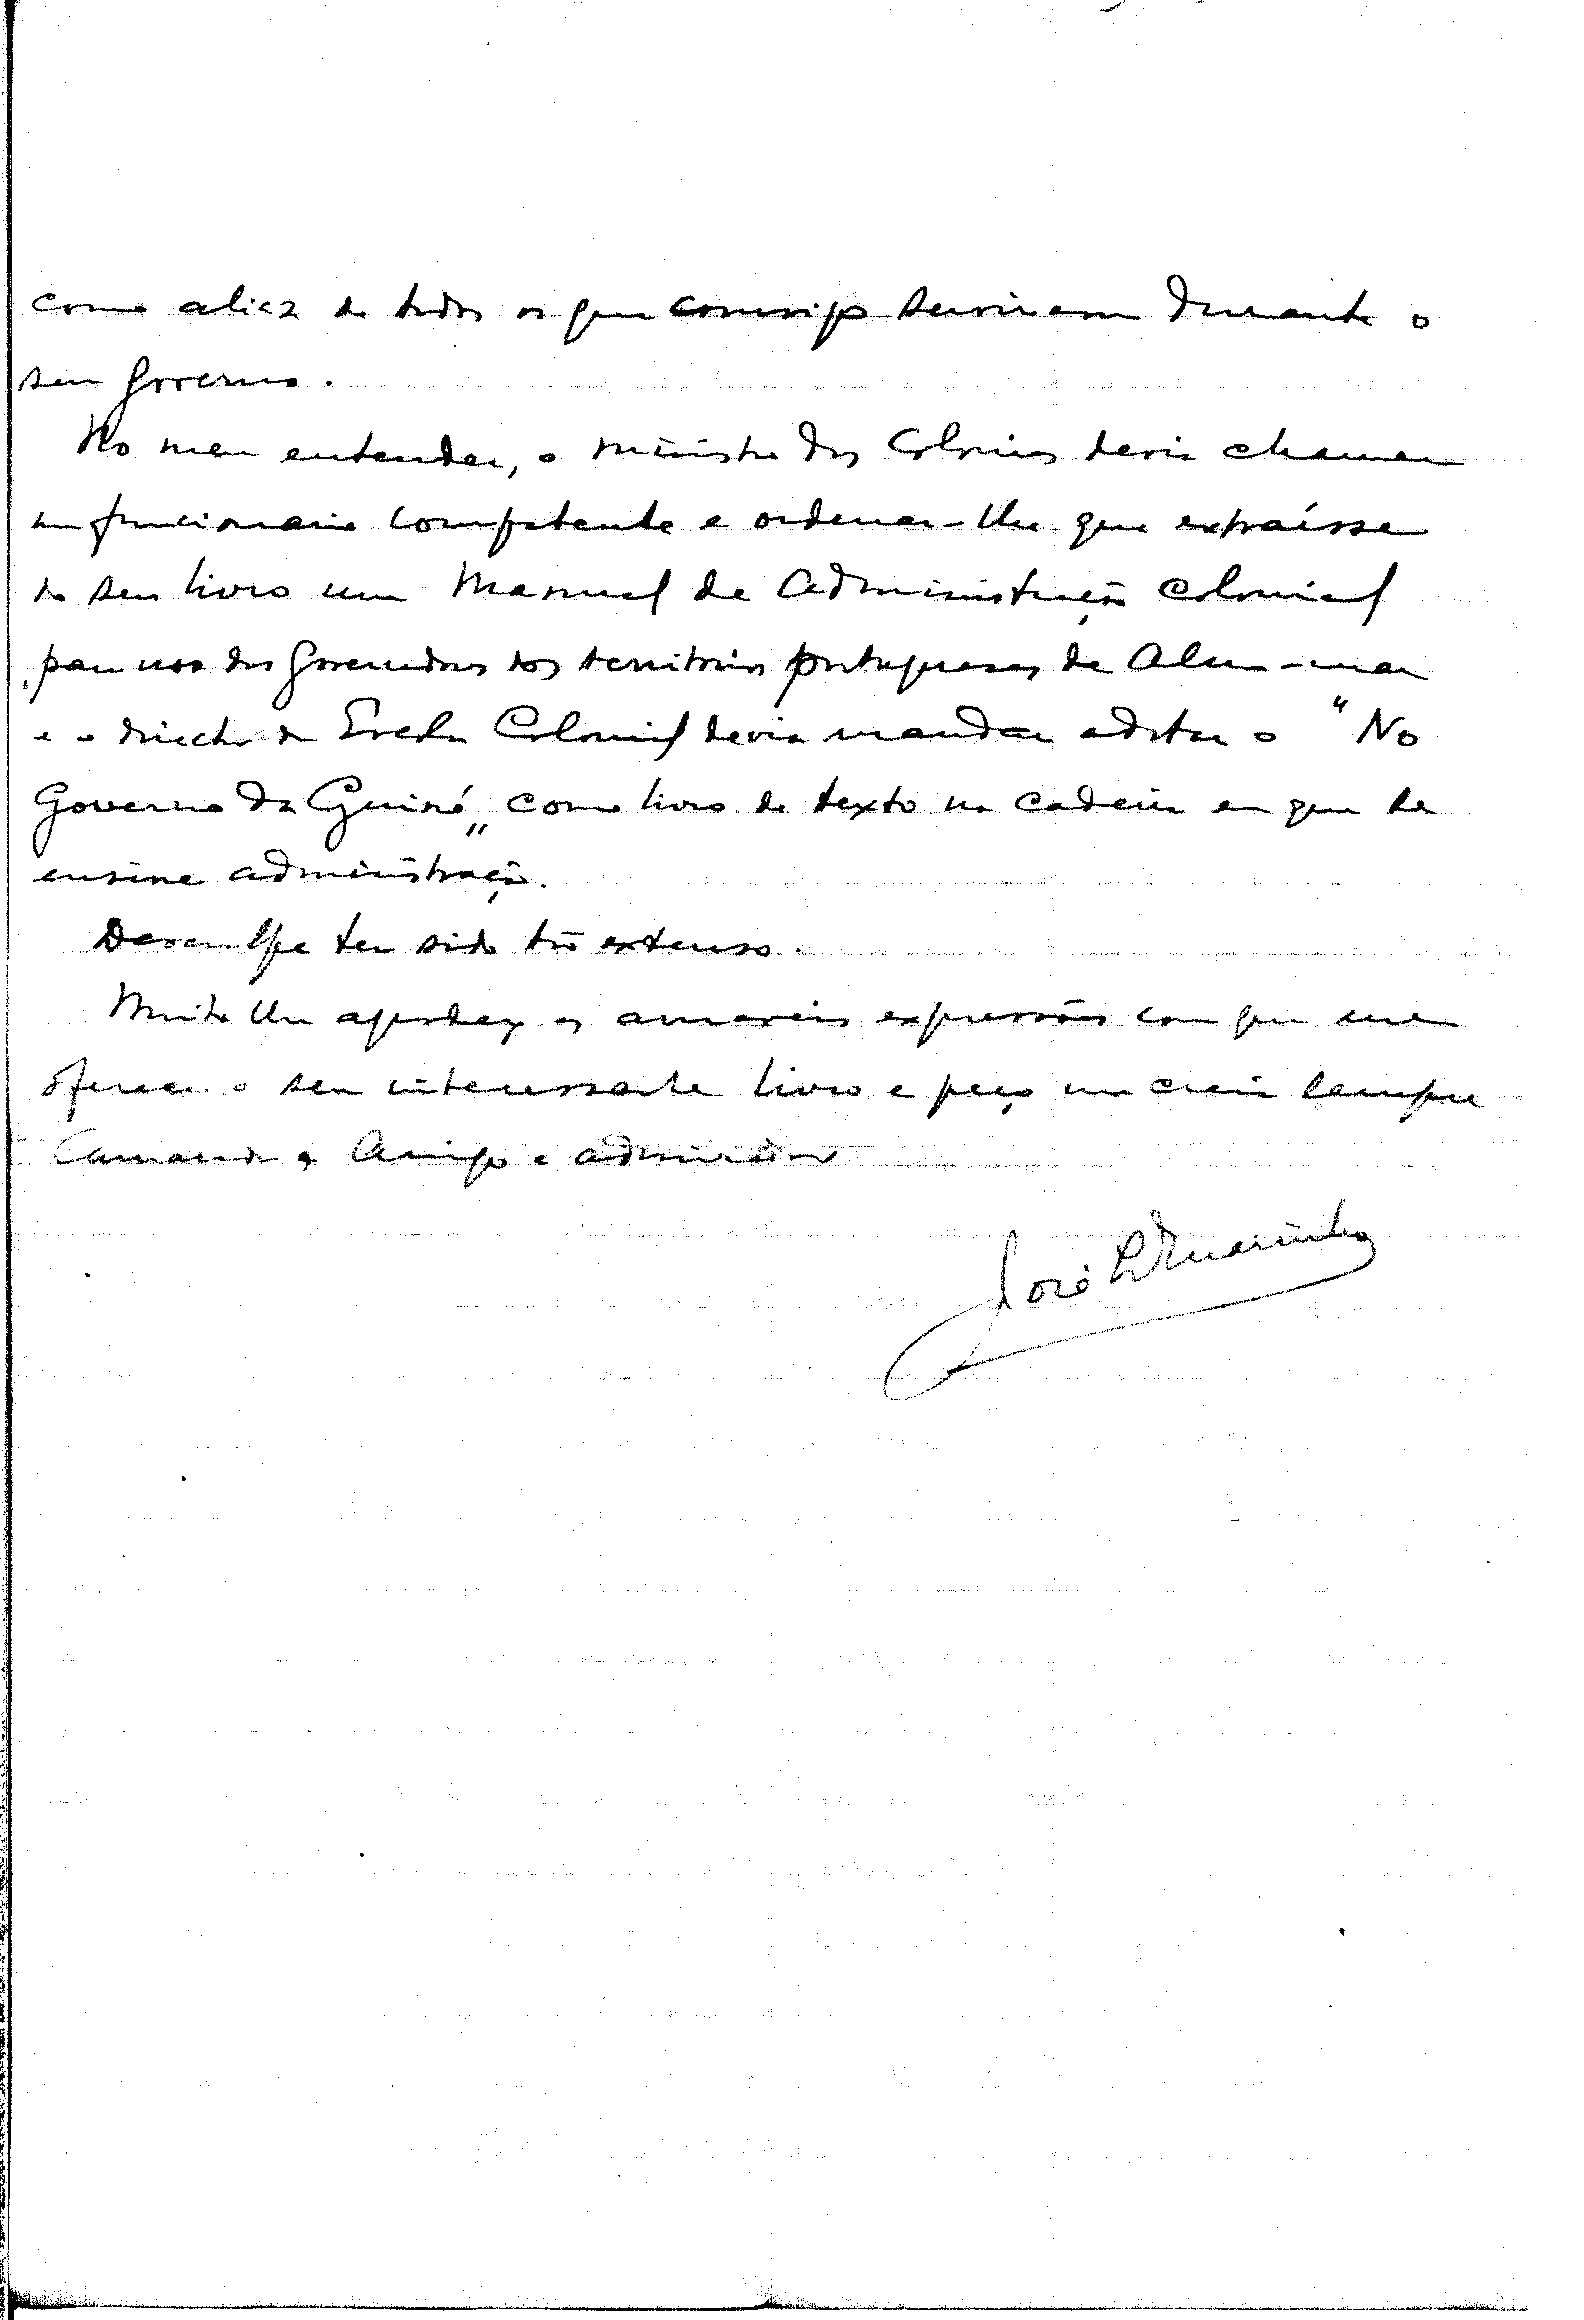 como aliaz de todos os que comsigo serviram durante o
seu governo.
No meu entender, o ministro das Colonias devia chamar
um funcionario competente e ordenar-lhe que extraísse
do seu livro um Manual de Administração Colonial
para uso dos governadores dos territorios portugueses de Alem-mar
e o director da Escola Colonial devia mandar adotar o "No
Governo da Guiné" como livro de texto na cadeira em que se
ensine administração.
Desculpe ter sido tão extenso.
Muito lhe agradeço as amaveis expressões com que me
oferece o seu interessante livro e peço me creia sempre
Camarada Amigo e admirador
José